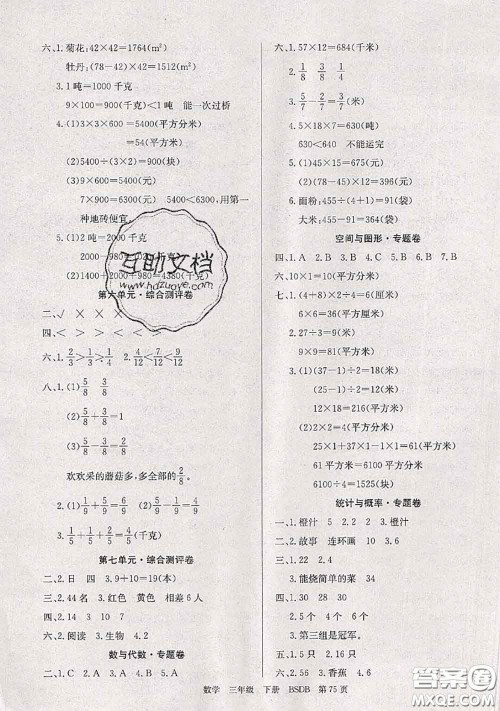 六、1.菊花:42×42=1764(m²)
牡丹:(78-42)×42=1512(m²)
3.1吨=1000千克
9×100=900(千克)<1吨 能一次过桥
4.(1)3×3×600=5400(平方分米)
=54(平方米)
(2)5400÷(3×2)=900(块)
(3)9×600=5400(元)
7×900=6300(元) 5400<6300,用第一
种地砖便宜。
5.(1)2吨=2000千克
2000-980
(2)1400+2000+980=4380(千克)
第六单元·综合测评卷
二、√ × × × ×
四、< > < > >
六、1.2/3>1/3>1/4 2.4/12<7/12<9/12
八、1.(1)5/8 3/8
(2)5/8+3/8=1
(3)5/8-3/8=2/8
欢欢采的蘑菇多,多全部的2/8。
2.(1)1/9 5/9 (2)1/9+5/9=6/9
3.1/5+1/5+2/5=4/5(千克)
第七单元·综合测评卷
二、2.日 四 3.9+10=19(本)
四、2.44名 3.红色 黄色 相差6名
六、2.阅读 3.生物 4.2
数与代数·专题卷
二、1.C 2.A 3.A 4.B 5.A
六、1.57×12=684(千米)
2.1/8 3/8 4/8
3.5/7-2/7=3/7(米)
4.5×18×7=630(吨)
630<640 不能运完
5.(1)45×15=675(千米)
(2)78×45=3510(元)
6.面粉:455÷(4+1)=91(袋)
大米:455-91=364(袋)
空间与图形·专题卷
四、1.A 2.B 3.B 4.C 5.B 6.B 7.B
六、10×1=10(平方米)
七、1.(4+8)×2÷4=6(厘米)
6×6=36(平方厘米)
2.(4+5)×2÷2=9(米)
9×9=81(平方米)
3.(1)(37-1)÷2=18(米)
(25-1)÷2=12(米)
18×12=216(平方米)
(2)25×1+37×1-1×1
=61(平方米)
61平方米=6100平方分米
6100÷4=1525(块)
统计与概率·专题卷
一、1.橙汁 5 2.2 3.橙汁
二、2.故事 连环画 10 3.9
四、1.52 33
3.能烧简单的菜
五、1.30 28 30
2.5个 4个 6个
3.第三组是冠军。
六、2.56 3.香蕉 4.6
数学 三年级 下册 BSDB 第75页
互助文档
www.hdzuoye.com